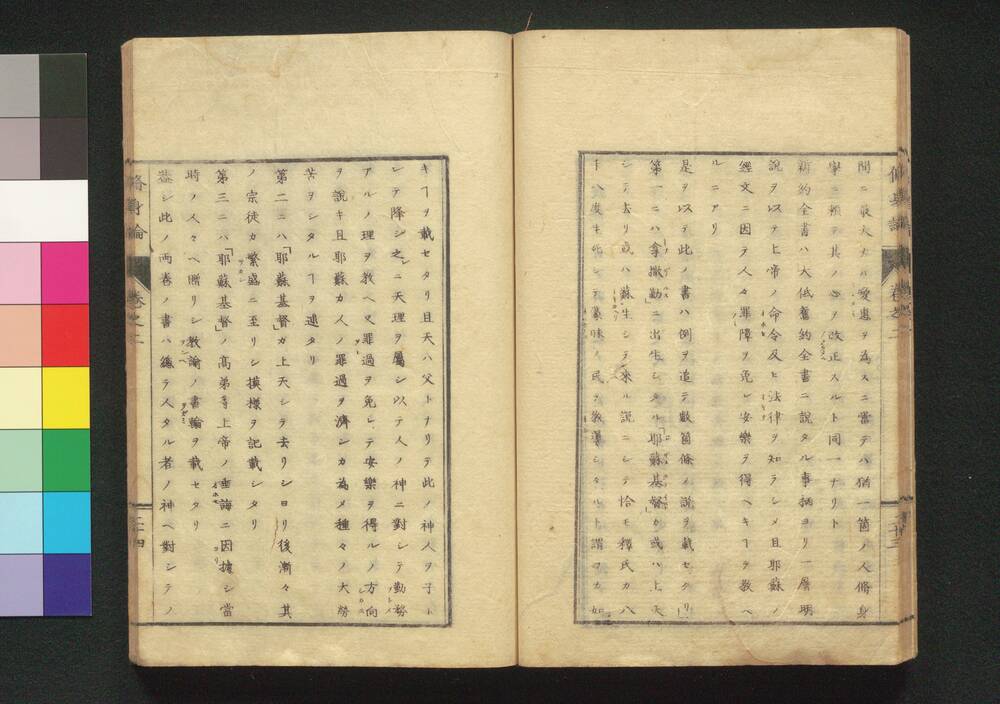 間ニ最大ナル愛惠ヲ為スニ當テハ猶一箇ノ人脩身
寧ニ頼テ其ノ心ヲ改正スルト同一ナリト
新約全書ハ大低舊約全書ニ説タル事柄ヨリ一層明
説ヲ以テ上帝ノ命令及ヒ法律ヲ知ラシメ且耶蘇ノ
經文ニ因テ人々罪障ヲ免レ安樂ヲ得ヘキヿヲ教ヘ
ルニアリ
是ヲ以テ此ノ書ハ例ヲ追テ數箇條ノ説ヲ載セタリ
第一ニハ拿撒勒ニ出生シタル「耶蘇基督」カ或ハ上天
シテ去リ或ハ蘇生シテ來ル説ニシテ恰モ釋氏カ八
千八度生死シテ蒙昧ノ民ヲ教導シタルト謂フカ如
脩身論
卷之二
二十三
キヿヲ載セタリ且天ハ父トナリテ此ノ神人ヲ子ト
シテ降シ之ニ天理ヲ屬シ以テ人ノ神ニ對シテ勤務
アルノ理ヲ教ヘ又罪過ヲ免レテ安樂ヲ得ルノ方向
ヲ説キ且耶蘇カ人ノ罪過ヲ濟シカ為メ種々ノ大勞
苦ヲシタルヿヲ述タリ
第二ニハ「耶蘇基督」カ上天シテ去リシヨリ後漸々其
ノ宗徒カ繁盛ニ至リシ摸様ヲ記載シタリ
第三ニハ「耶蘇基督」ノ高弟等上帝ノ垂誨ニ因據シ當
時ノ人々ヘ贈リシ教諭ノ書翰ヲ載セタリ
蓋シ此ノ両巻ノ書ハ總テ人タル者ノ神ヘ對シテノ
脩身論
卷之二
二十四